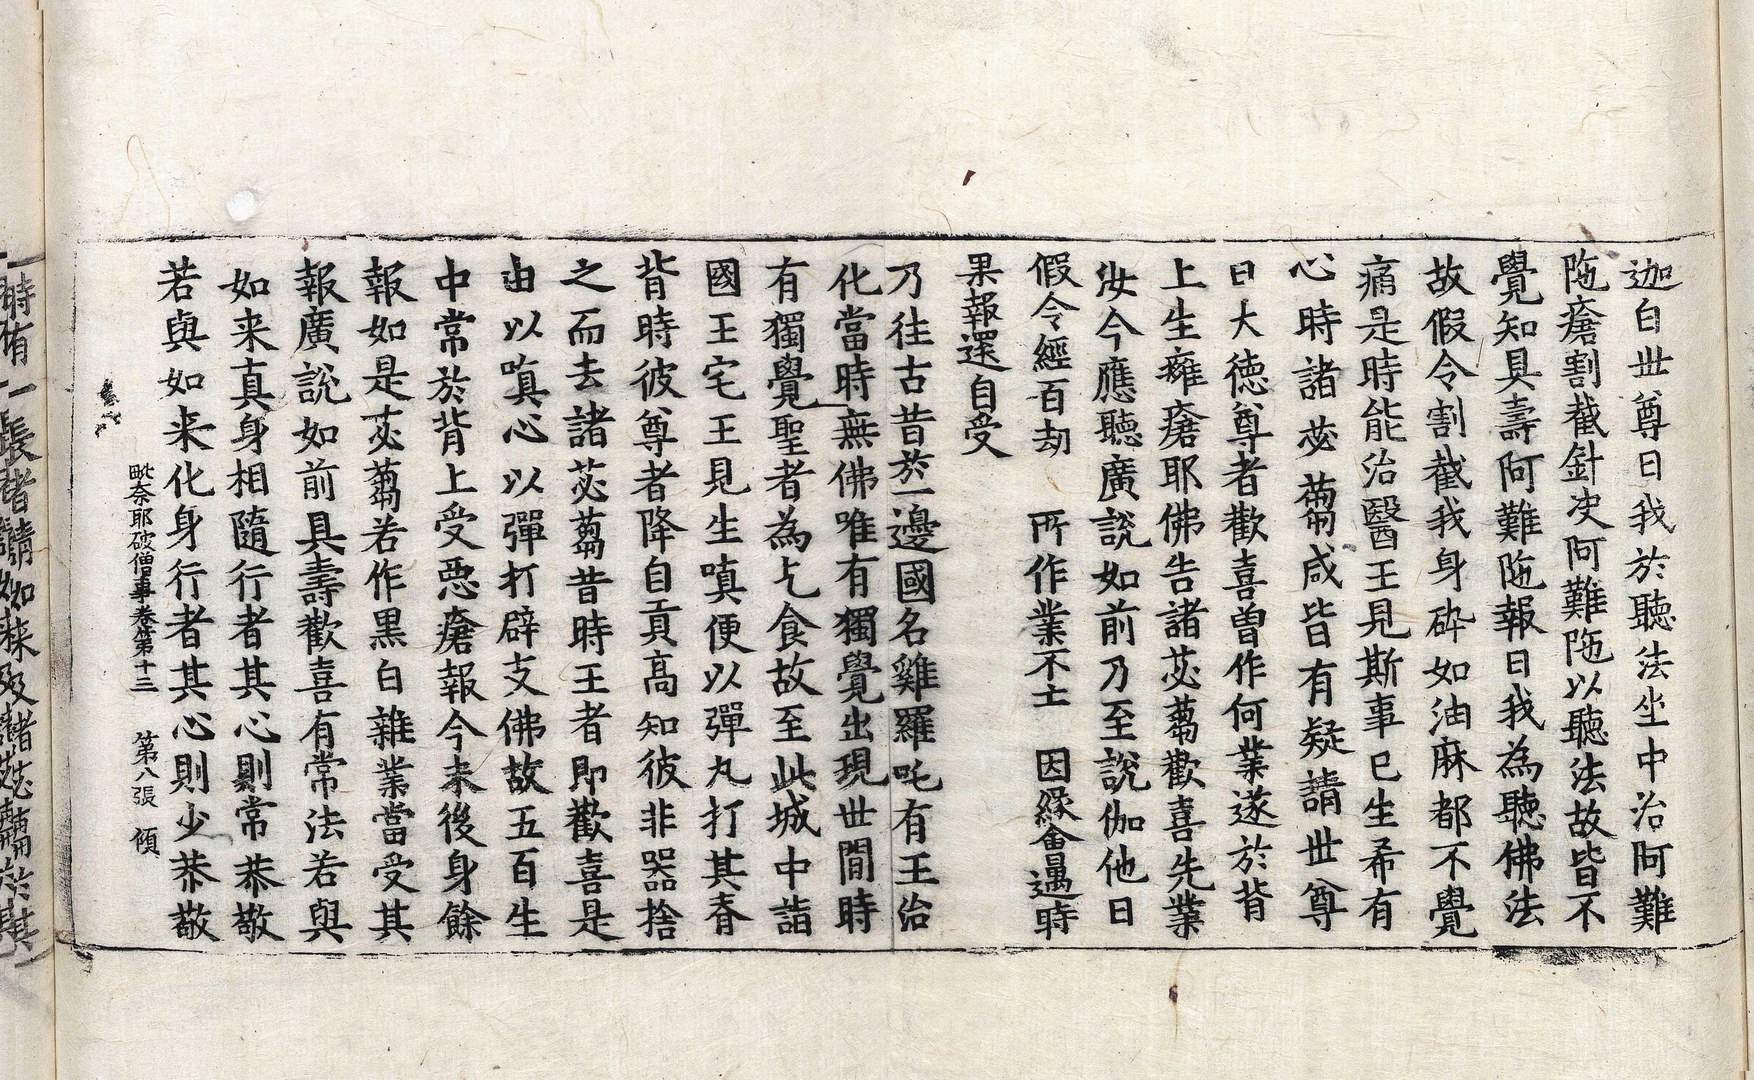 迦白世尊曰我於聽法坐中治阿難
陁瘡割截針决阿難陁以聽法故皆不
覺知具壽阿難陁報曰我為聽佛法
故假令割截我身碎如油麻都不覺
痛是時能治醫王見斯事已生希有
心時諸苾蒭咸皆有疑請世尊
曰大德尊者歡喜曾作何業遂於背
上生癰瘡耶佛告諸苾蒭歡喜先業
汝今應聽廣說如前乃至說伽他曰
假令經百劫 所作業不亡 因緣會遇時
果報還自受
乃往古昔於一邊國名雞羅吒有王治
化當時無佛唯有獨覺出現世間時
有獨覺聖者為乞食故至此城中詣
國王宅王見生嗔便以彈丸打其脊
背時彼尊者降自貢高知彼非器捨
之而去諸苾蒭昔時王者即歡喜是
由以嗔心以彈打辟支佛故五百生
中常於背上受惡瘡報今来後身餘
報如是苾蒭若作黑白雜業當受其
報廣說如前具壽歡喜有常法若與
如来真身相隨行者其心則常恭敬
若與如来化身行者其心則少恭敬
毗奈耶破僧事卷第十三 第八張 傾
時有一長者請如来及諸苾蒭於其